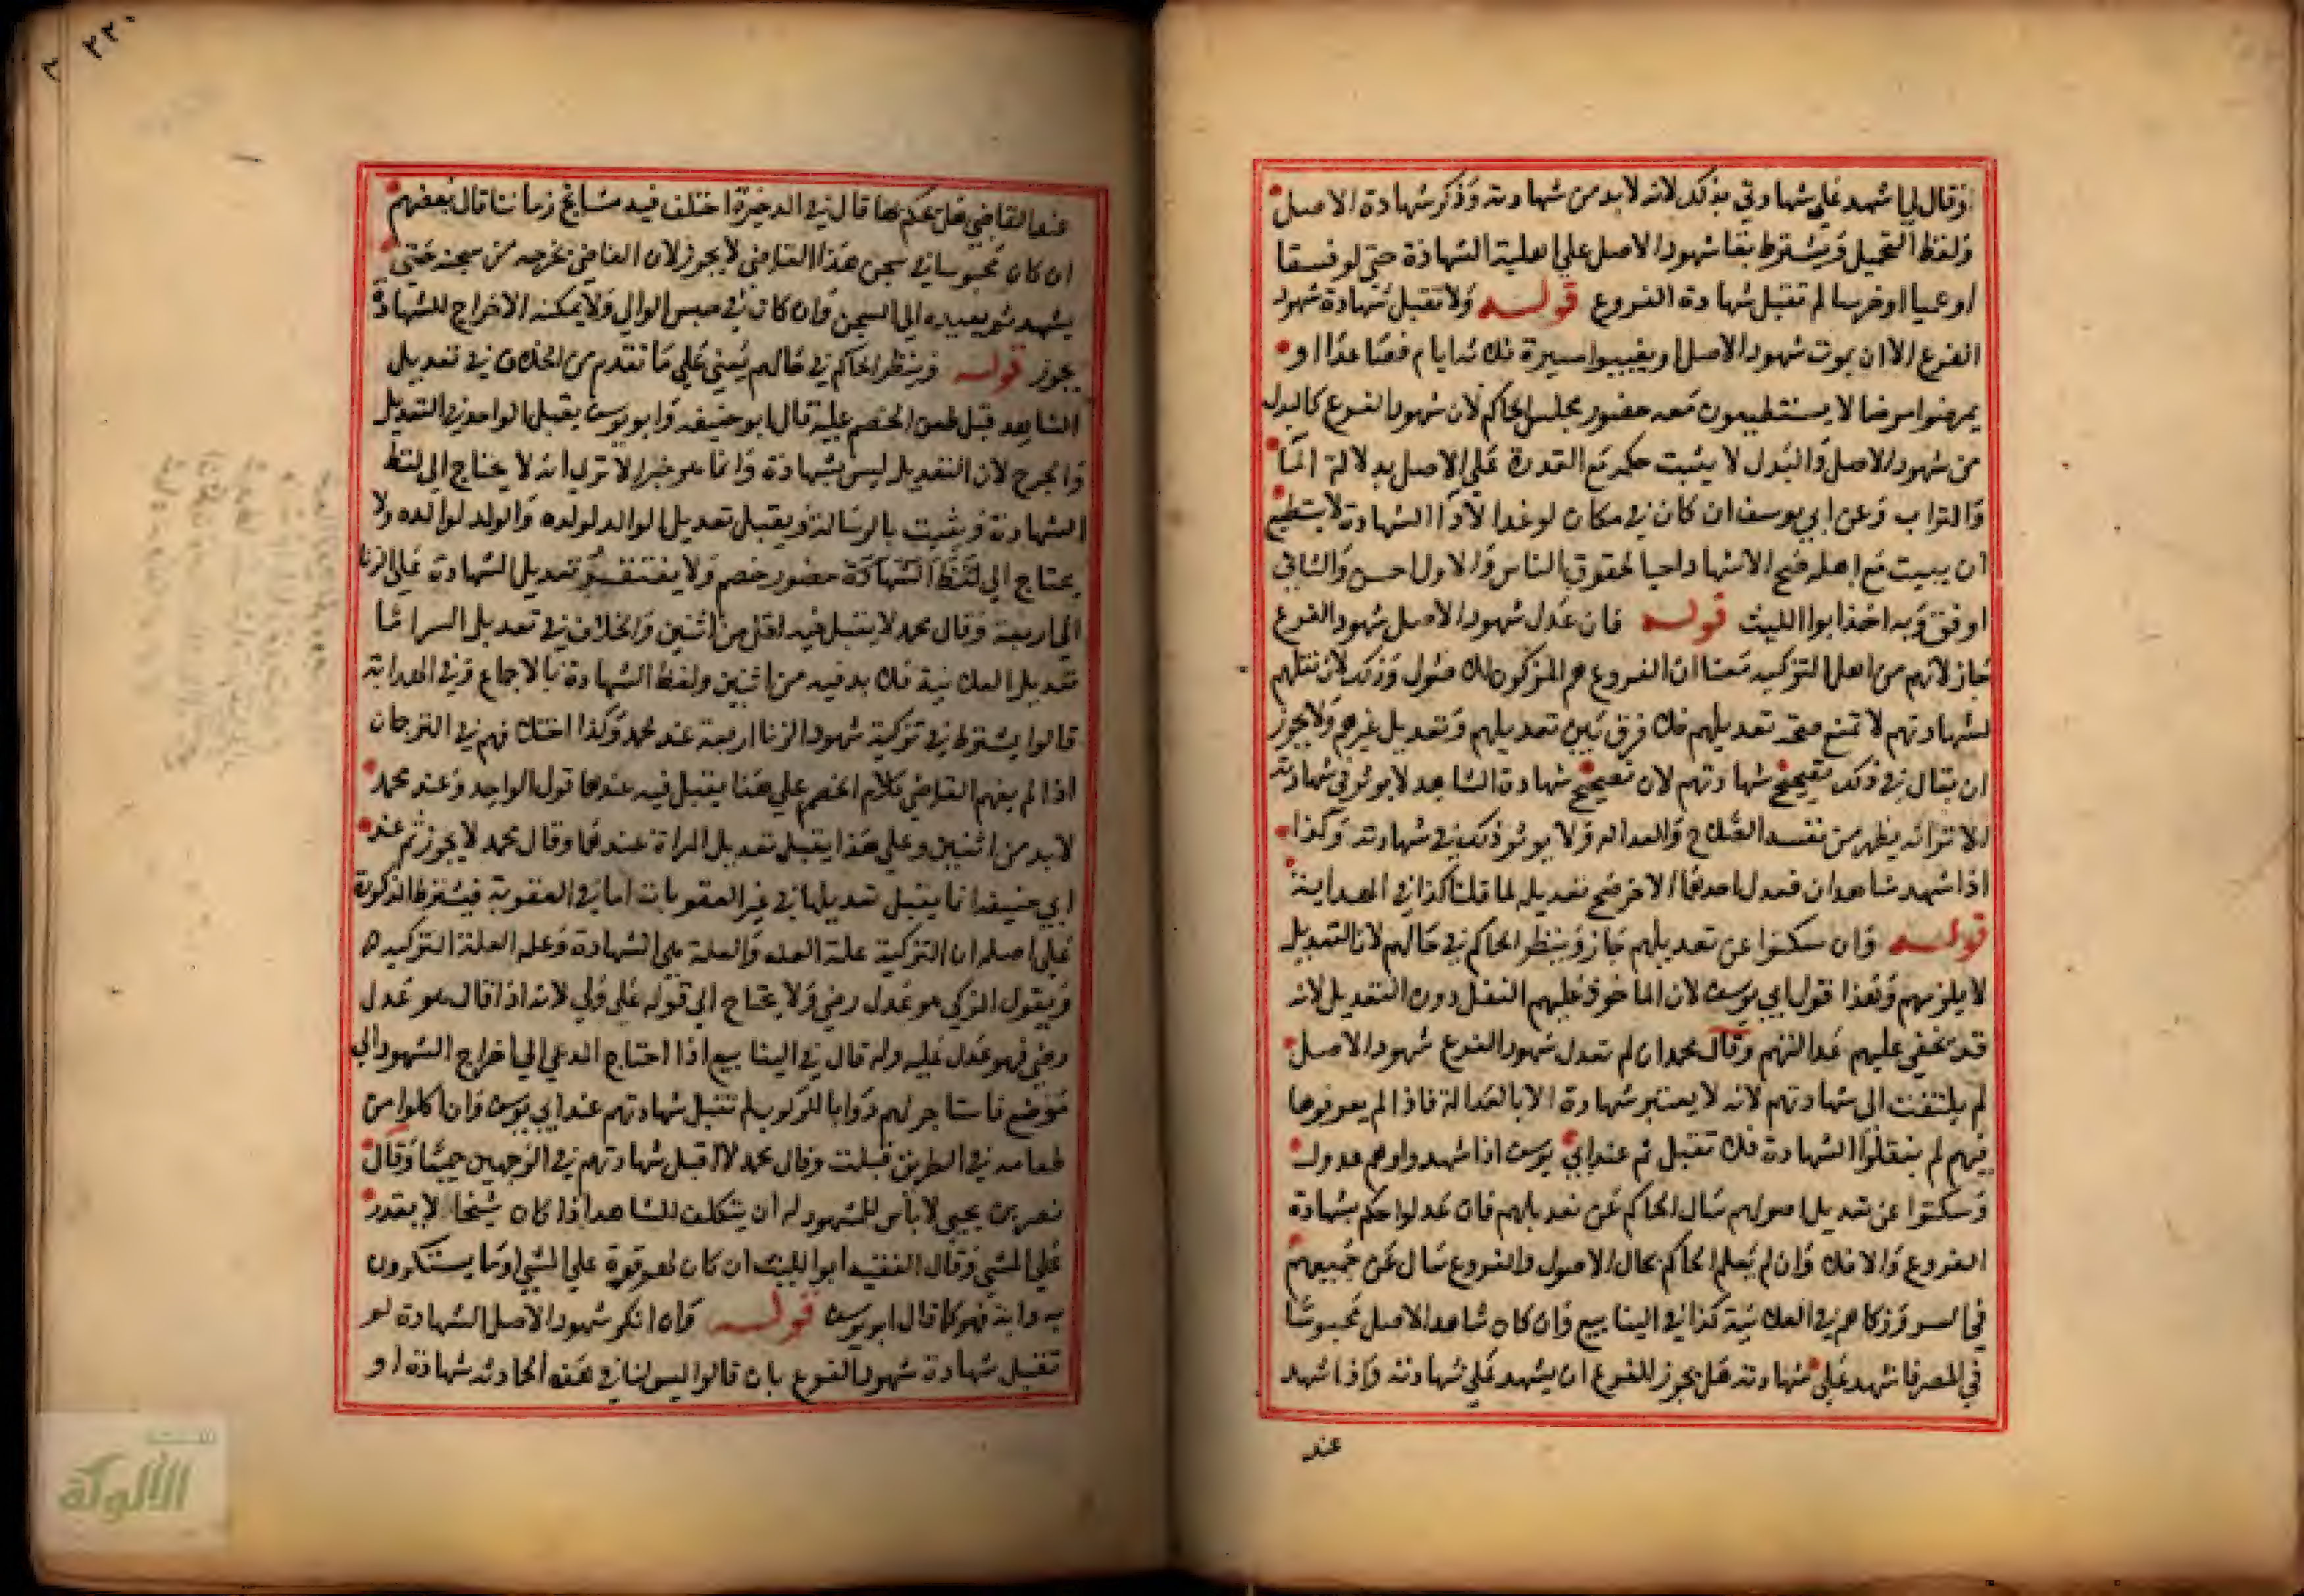 اذ قال لي اشهد علي شهادتي بذلك لانه لا بد من شهادته وذكر شهادة الاصل
ولفظ التحميل ويشترط بقا شهود الاصل علي اهلية الشهادة حتي لو فسقا
او عميا او خرسا لم تقبل شهادة الفروع قوله ولا تقبل شهادة شهود
الفرع الا ان يموت شهود الاصل او يغيبوا مسيرة ثلاثة ايام فصاعدا او
يمرضوا مرضا لا يستطيعون معه حضور مجلس الحاكم لان شهود الفروع كالبدل
من شهود الاصل والبدل لا يثبت حكمه مع القدرة علي الاصل بدلالة الما
والتراب وعن ابي يوسف ان كان في مكان لو غدا لادا الشهادة لا يستطيع
ان يبيت مع اهله صح الاشهاد احيا لحقوق الناس والاول احسن والثاني
اوفق وبه اخذ ابوا الليث قوله فان عدل شهود الاصل شهود الفرع
جاز لانهم من اهل التزكيه معنا ان الفروع هم المزكون للاصول وذلك لان نقلهم
لشهادتهم لا تمنع صحة تعديلهم فلا فرق بين تعديلهم وتعديل غيرهم ولا يجوز
ان يقال في ذلك تصحيح شهادتهم لان تصحيح شهادة الشاهد لا يوثر في شهادته
الا ترا انه يظهر من نفسه الصلاح والعداله ولا يوثر ذلك في شهادته وكذا
اذا شهد شاهدان فعدل احدهما الاخر صح تعديله لما قلنا كذا في الهداية
قوله وان سكتوا عن تعديلهم جاز وينظر الحاكم في حالهم لان التعديل
لا يلزمهم وهذا قول ابي يوسف لان الماخوذ عليهم النقل دون التعديل لانه
قد يخفي عليهم عدالتهم وقال محمد ان لم تعدل شهود الفرع شهود الاصل
لم يلتفت الي شهادتهم لانه لا يعتبر شهادة الا بالعدالة فاذا لم يعرفوها
فيهم لم ينقلوا الشهادة فلا تقبل ثم عند ابي يوسف اذا شهدوا وهم عدول
وسكتوا عن تعديل اصولهم سال الحاكم عن تعديلهم فان عدلوا حكم بشهادة
الفروع والا فلا وان لم يعلم الحاكم بحال الاصول والفروع سال عن جميعهم
في السر وزكاهم في العلانية كذا في الينابيع وان كان شاهد الاصل محبوسا
في المصر فاشهد علي شهادته هل يجوز للفرع ان يشهد علي شهادته واذا شهد
عند
٢٢٠
عند القاضي هل يحكم بها قال في الدخيرة اختلف فيه مشايخ زماننا قال بعضهم
ان كان محبوسا في سجن هذا القاضي لا يجوز لان القاضي يخرجه من سجنه حتي
يشهد ثم يعيده الي السجن وان كان في حبس الوالي ولا يمكنه الاخراج للشهادة
يجوز قوله وينظر الحاكم في حالهم يعني علي ما تقدم من الخلاف في تعديل
الشاهد قبل طعن الخصم عليه قال ابو حنيفه وابو يوسف يقبل الواحد في التعديل
والجرح لان التعديل ليس بشهادة وانما هو خبر الا تري انه لا يحتاج الي لفظ
الشهادة ويثبت بالرسالة ويقبل تعديل الوالد لولده والولد لوالده ولا
يحتاج الي لفظ الشهادة حضور خصم ولا يفتقر تعديل الشهادة علي الزنا
الي اربعة وقال محمد لا يقبل فيه اقل من اثنين والخلاف في تعديل السر اما
تعديل العلانية فلا بد فيه من اثنين ولفظ الشهادة بالاجماع وفي الهداية
قالوا يشترط في تزكية شهود الزنا اربعة عند محمد وكذا اختلافهم في الترجمان
اذا لم يفهم القاضي كلام الخصم علي هذا يقبل فيه عندهما قول الواحد وعند محمد
لا بد من اثنين وعلي هذا يقبل تعديل المراة عندهما وقال محمد لا يجوز ثم عند
ابي حنيفة انما يقبل تعديلها في غير العقوبات اما في العقوبة فيشترط الذكورة
علي اصله ان التزكية علة العله والعلة هي الشهادة وعلة العلة التزكيه
ويقول المزكي هو عدل رضي ولا يحتاج الي قوله علي ولي لانه اذا قال هو عدل
رضي فهو عدل عليه وله قال في الينابيع اذا احتاج المدعي الي اخراج الشهود الي
موضع فاستاجر لهم دوابا للركوب لم تقبل شهادتهم عند ابي يوسف وان اكلوا من
طعامه في الطريق قبلت وقال محمد لا اقبل شهادتهم في الوجهين جميعا وقال
نصر بن يحيي لا باس للمشهود له ان يتكلف للشاهد اذا كان شيخا لا يقدر
علي المشي وقال الفقيه ابو الليث ان كان لهم قوة علي المشي او ما يستكرون
به دابة فهو كما قال ابو يوسف قوله وان انكر شهود الاصل الشهادة لم
تقبل شهادة شهود الفرع بان قالوا ليس لنا في هذه الحادثه شهادة او
الألوكة